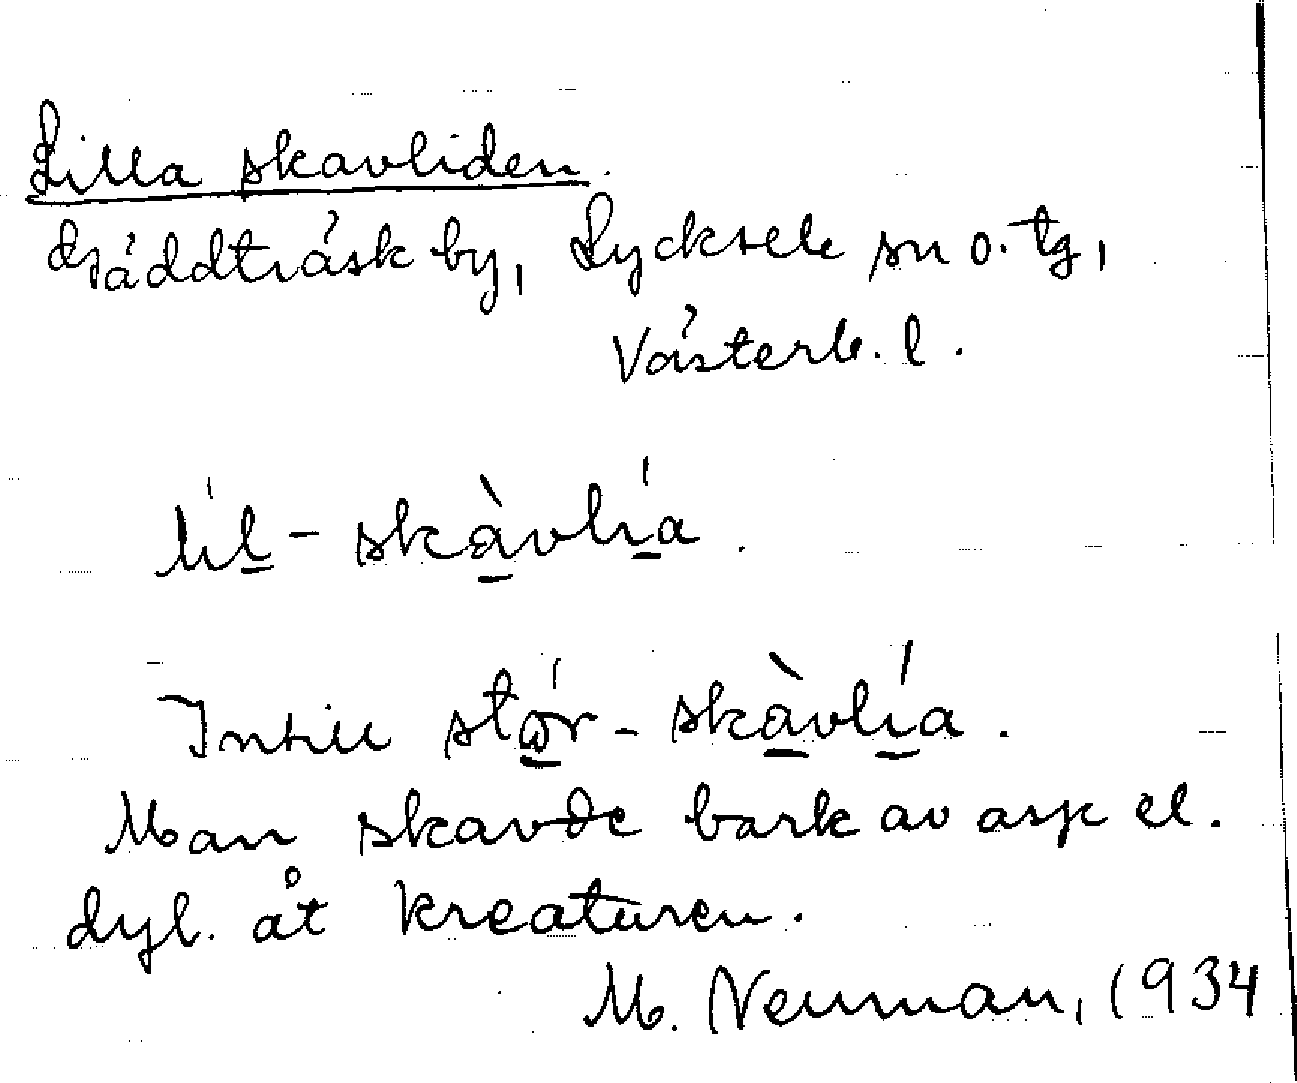 Lilla skavliden.
Gäddträsk by, Lycksele sn o. tg,
Västerb. l.
líl̲ - skà̲vlí̲a.
Intill stώ̲r - skà̲vlí̲a.
Man skavde bark av asp el.
dyl. åt kreaturen.
M. Neuman, 1934